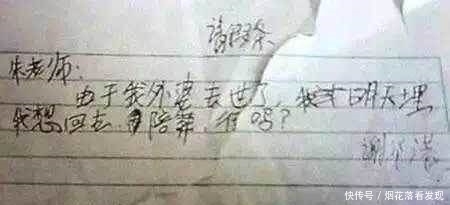 请假条
朱老师:
由于我外婆去世了,我 明天埋
我想回去 陪葬,行吗?
谢
快传号 / 烟花落看发现